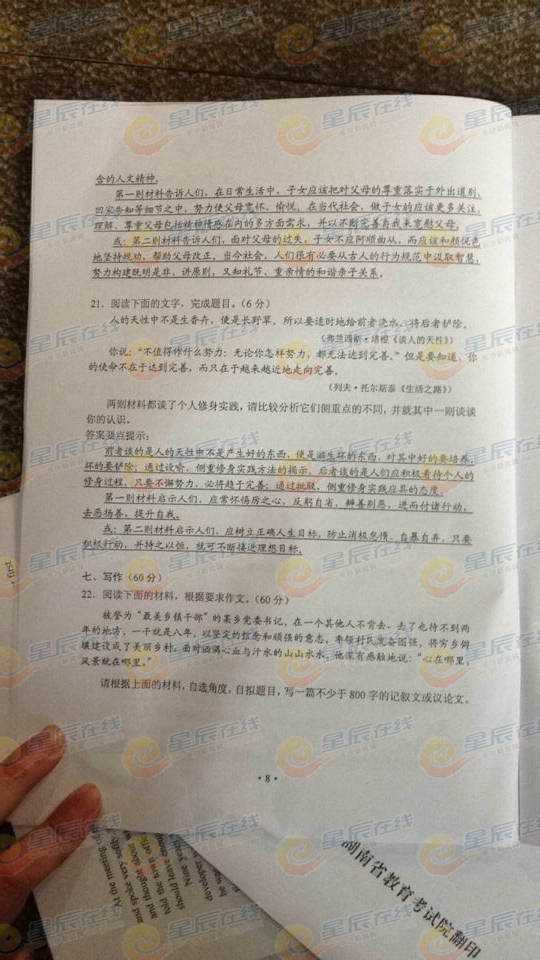 含的人文精神。
第一则材料告诉人们，在日常生活中，子女应该把对父母的尊重落实于外出道别、
回家告知等细节之中，努力使父母宽怀、愉悦。在当代社会，做子女的应该更多关注、
理解、尊重父母包括精神情感在内的多方面需求，并以不断完善自我来宽慰父母。
或：第二则材料告诉人们，面对父母的过失，子女不应阿顺曲从，而应该和颜悦色
地坚持规劝，帮助父母改正，当今社会，人们很有必要从古人的行为规范中汲取智慧，
努力构建既明是非、讲原则，又知礼节、重亲情的和谐亲子关系。
21．阅读下面的文字，完成题目。（6 分）
人的天性中不是生香卉，便是长野草，所以要适时地给前者浇水，将后者铲除。
（弗兰西斯·培根《谈人的天性》）
你说：“不值得作什么努力：无论你怎样努力，都无法达到完善。”但是要知道，你
的使命不在于达到完善，而只在于越来越近地走向完善。
（列夫·托尔斯泰《生活之路》）
两则材料都谈了个人修身实践，请比较分析它们侧重点的不同，并就其中一则谈谈
你的认识。
答案要点提示：
前者谈的是人的天性中不是产生好的东西，便是滋生坏的东西，对其中好的要培养，
坏的要铲除；通过设喻，侧重修身实践方法的揭示。后者谈的是人们应积极看待个人的
修身过程，只要不懈努力，必将趋于完善；通过批驳，侧重修身实践应具的态度。
第一则材料启示人们，应常怀惕厉之心，反躬自省，辨善别恶，进而付诸行动，
去恶扬善，提升自我。
或：第二则材料启示人们，应树立正确人生目标，防止消极怠惰、自暴自弃，只要
积极行动，并持之以恒，就可不断接近理想目标。
七、写作（60 分）
22．阅读下面的材料，根据要求作文。（60 分）
被誉为“最美乡镇干部”的某乡党委书记，在一个其他人不肯去、去了也待不到两
年的地方，一干就是八年，以坚定的信念和顽强的意志，率领村民发奋图强，将穷乡僻
壤建设成了美丽乡村。面对洒满心血与汗水的山山水水，他深有感触地说：“心在哪里，
风景就在哪里。”
请根据上面的材料，自选角度，自拟题目，写一篇不少于 800 字的记叙文或议论文。
·8·
湖南省教育考试院翻印
At the meeting
and spoke very softly
and thought about
told the town
should have
Nine years
developer
星辰在线